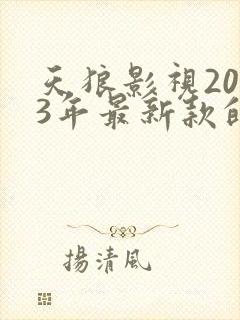 天狼影視20
3年最新款的
揚清風